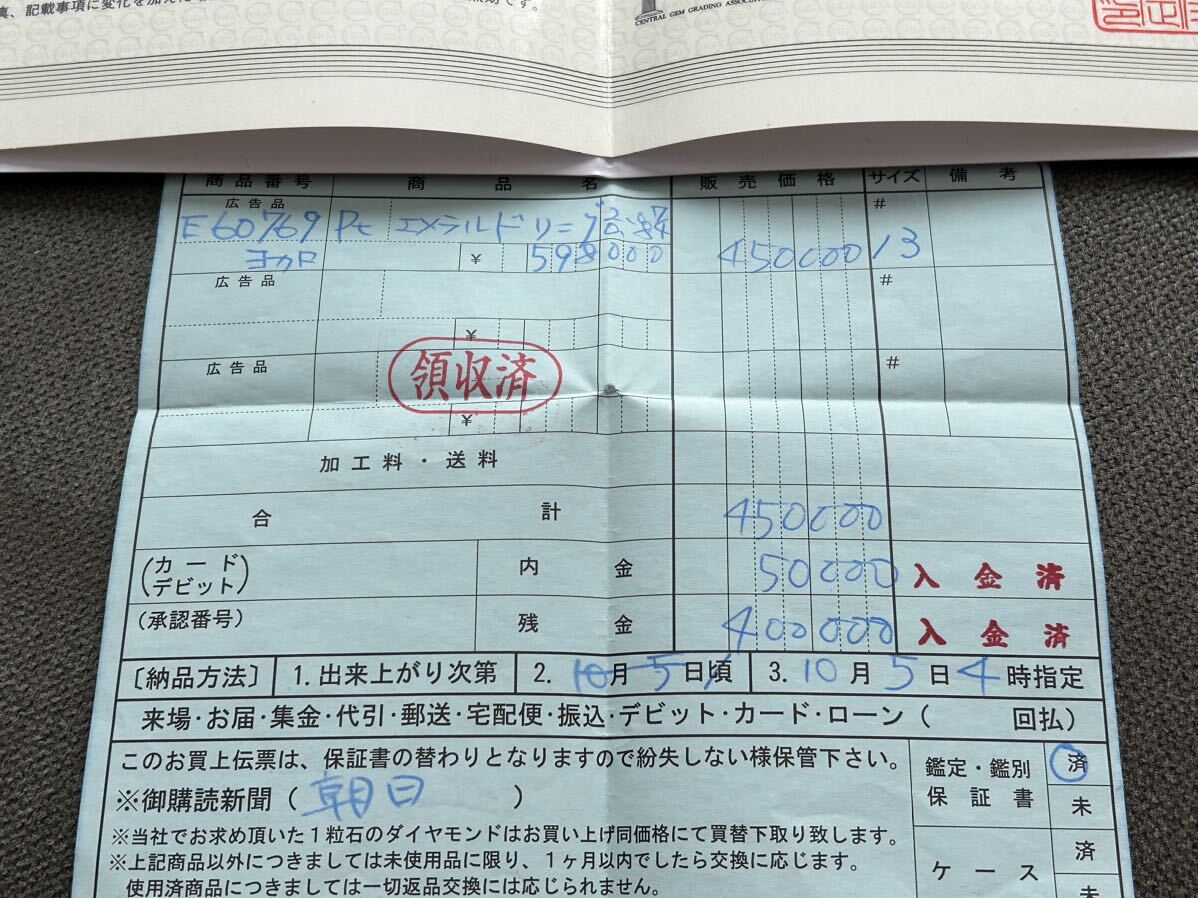 真、記載事項に変化を加えた
です。
CENTRAL GEM GRADING ASSOCIATION
商品番号 商品名 販売価格 サイズ 備考
広告品 #
E60769 Pt エメラルドリング 450000 13
ヨカロ ¥ 598000
広告品 #
¥
広告品 #
領収済
¥
加工料・送料
合計 450000
(カード デビット) 内金 50000 入金済
(承認番号) 残金 400000 入金済
〔納品方法〕 1.出来上がり次第 2. 10月5日頃 3. 10月5日4時指定
来場・お届・集金・代引・郵送・宅配便・振込・デビット・カード・ローン( 回払)
このお買上伝票は、保証書の替わりとなりますので紛失しない様保管下さい。
※御購読新聞(朝日)
鑑定・鑑別 保証書 済 未
※当社でお求め頂いた1粒石のダイヤモンドはお買い上げ同価格にて買替下取り致します。
※上記商品以外につきましては未使用品に限り、1ヶ月以内でしたら交換に応じます。
使用済商品につきましては一切返品交換には応じられません。
ケース 済 未